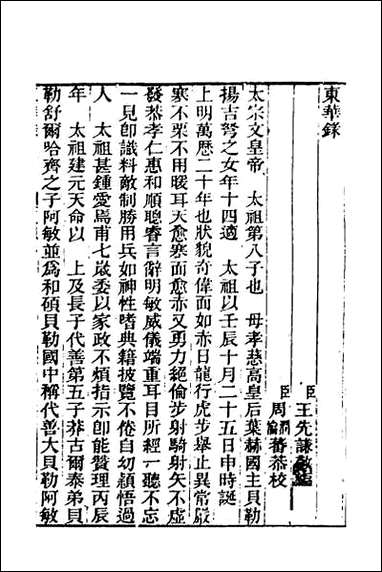 東華錄
臣王先謙敬編
臣周潤蕃恭校
太宗文皇帝 太祖第八子也 母孝慈高皇后葉赫國主貝勒
揚吉弩之女年十四適 太祖以壬辰十月二十五日申時誕
上明萬歷二十年也狀貌奇偉而如赤日龍行虎步舉止異常嚴
寒不栗不用暖耳天愈寒而愈赤又勇力絕倫步射騎射矢不虛
發恭孝仁惠和順聰睿言辭明敏威儀端重耳目所經一聽不忘
一見卽識料敵制勝用兵如神性嗜典籍披覽不倦自幼穎悟過
人 太祖甚鍾愛焉甫七歲委以家政不煩指示卽能贊理丙辰
年 太祖建元天命以 上及長子代善第五子莽古爾泰弟貝
勒舒爾哈齊之子阿敏並爲和碩貝勒國中稱代善大貝勒阿敏